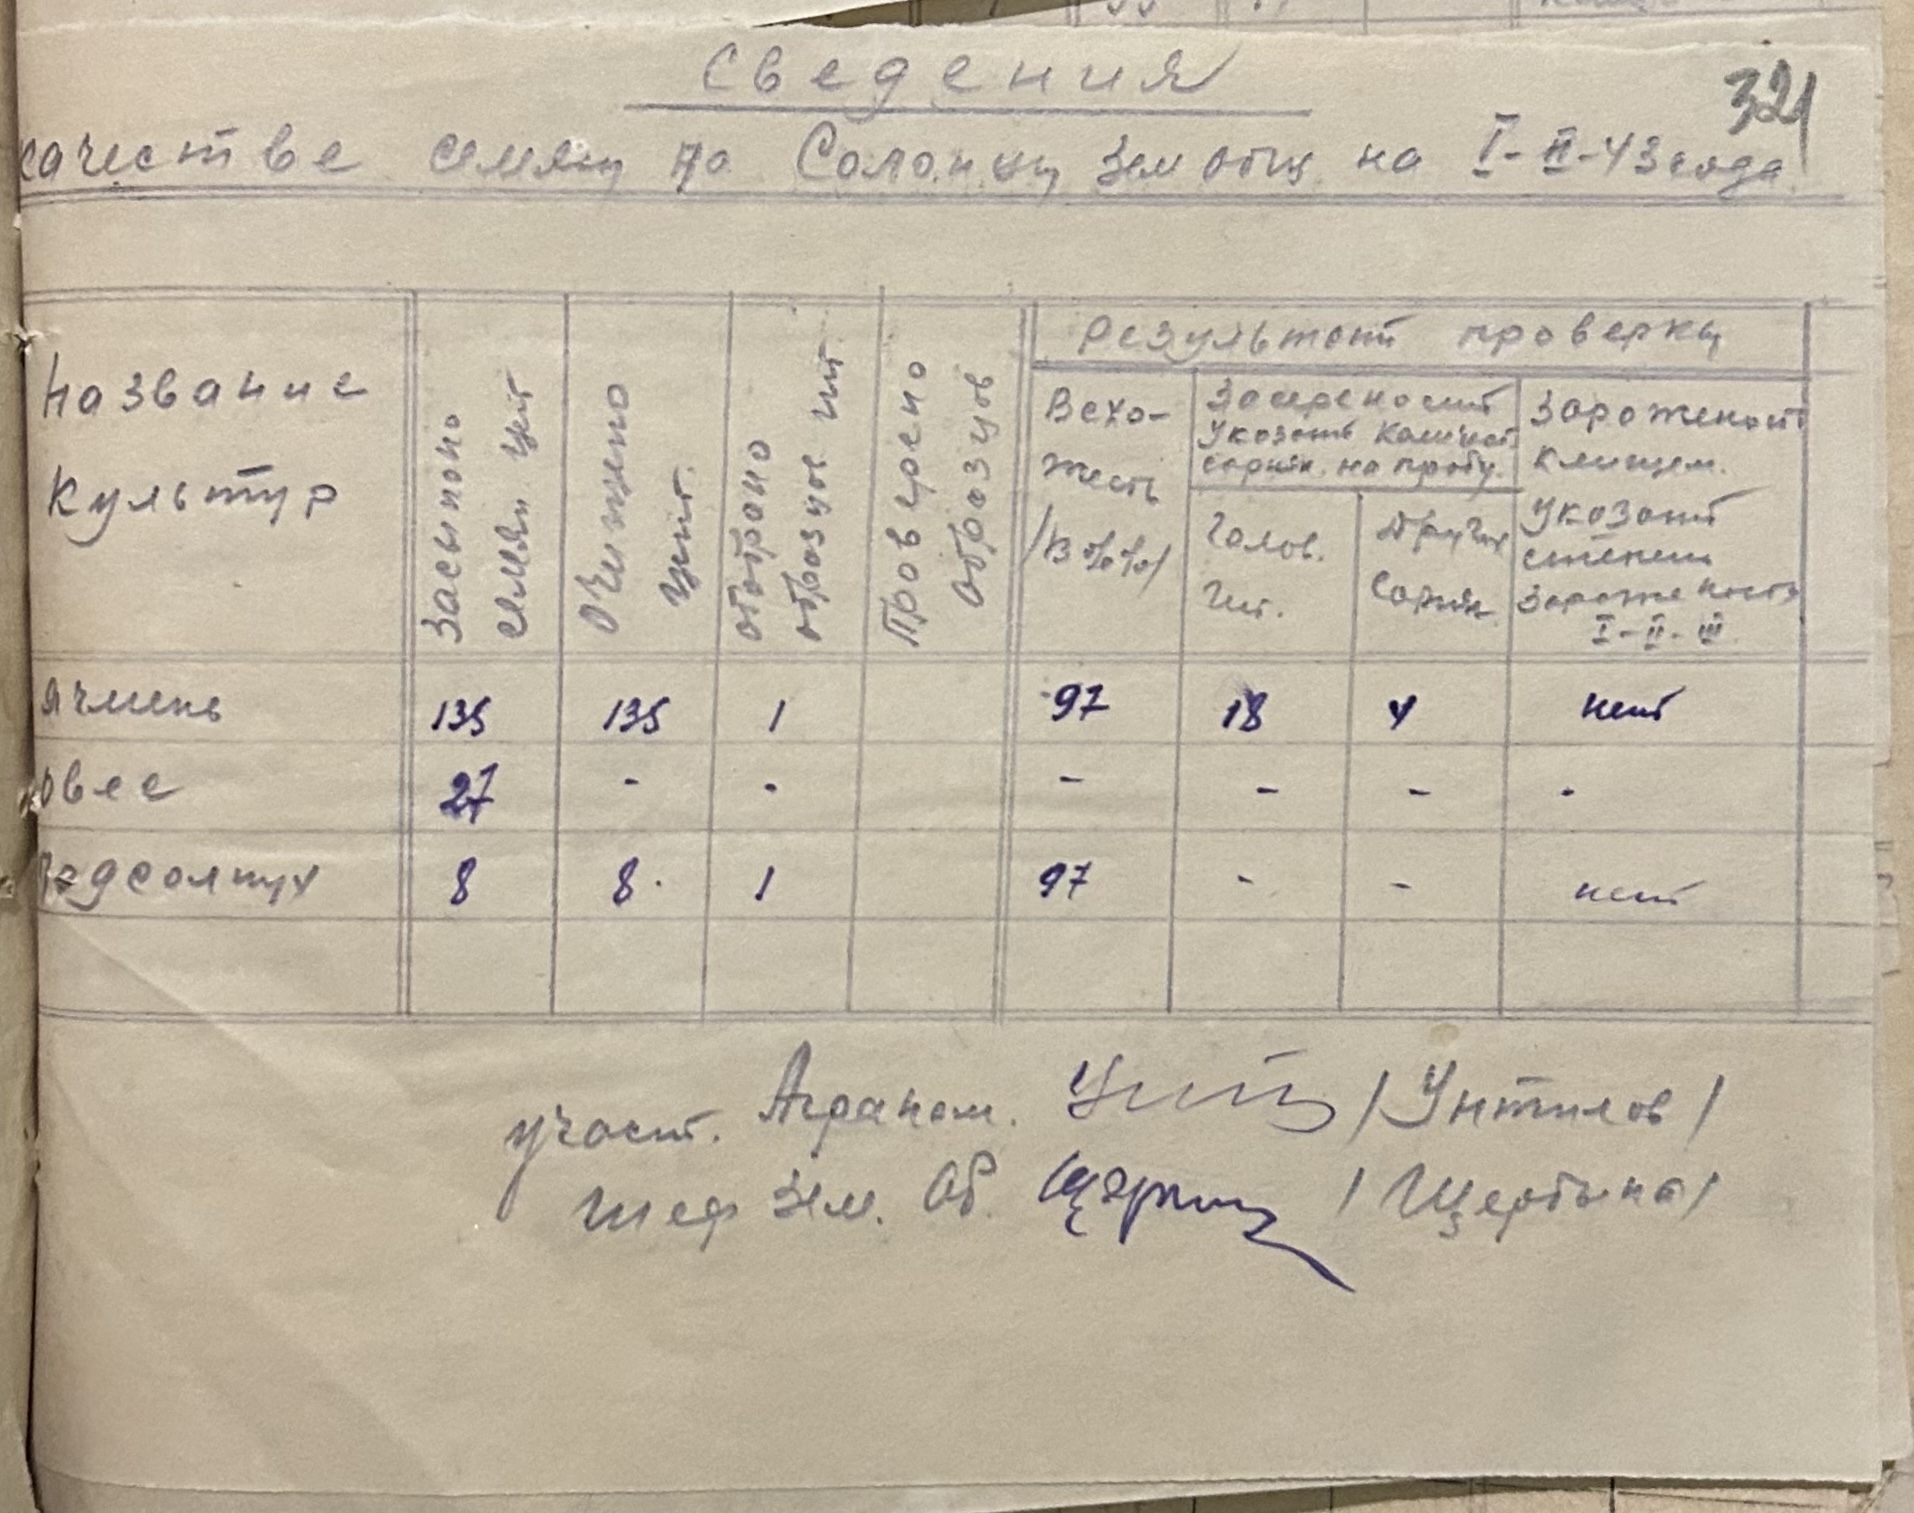 Сведения
321
качестве семян по Солонц. Зем общ на I-II-43 года
Название
культур
Засыпано
семян цнт
Очищено
цнт.
отобрано
образцов шт
Проверено
образцов
Результат проверки
Всхо-
жесть
/в %%/
Засореность
Указать количест.
сорняк. на пробу.
Голов.
шт.
Других
сорняк.
Зароженость
клищем.
Указать
степень
зароженость
I-II-III
Ячмень 135 135 1 97 18 4 нет
Овес 27 - - - - - -
Подсолнух 8 8. 1 97 - - нет
участ. Аграном. /Унтилов/
шеф Зем. Об. /Щербина/